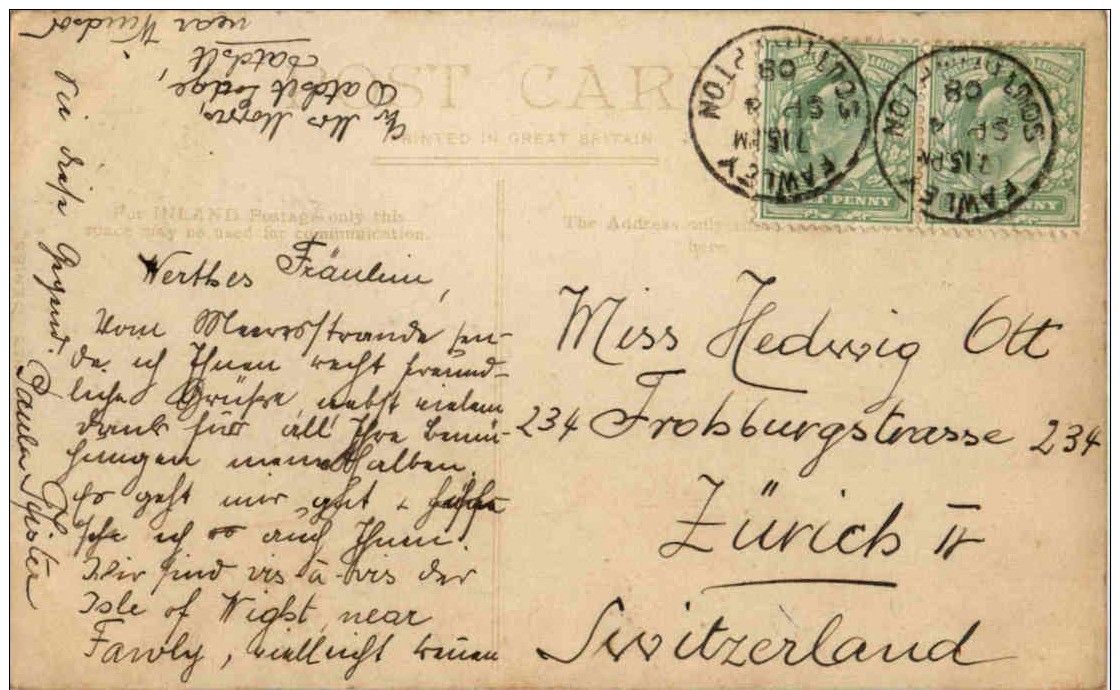 near Windsor
Datchet
Datchet Lodge,
Mrs
POST CARD
PRINTED IN GREAT BRITAIN
For INLAND Postage only this
space may be used for communication.
The Address only
here.
FAWLEY
SOUTHAMPTON
7 15 PM
SP 4
08
FAWLEY
SOUTHAMPTON
7 15 PM
SP 4
08
PENNY
PENNY
Werthes Fräulein,
Vom Meeresstrande sen-
de ich Ihnen recht freund-
liche Grüsse nebst vielem
Dank für all' Ihre Bemü-
hungen meinethalben.
Es geht mir gut & hoffe
ich es auch Ihnen.
Wir sind vis-à-vis der
Isle of Wight, near
Fawly, vielleicht kennen
Sie diese Gegend.
Paula Pfister
Miss Hedwig Ott
234 Frohburgstrasse 234
Zürich IV
Switzerland